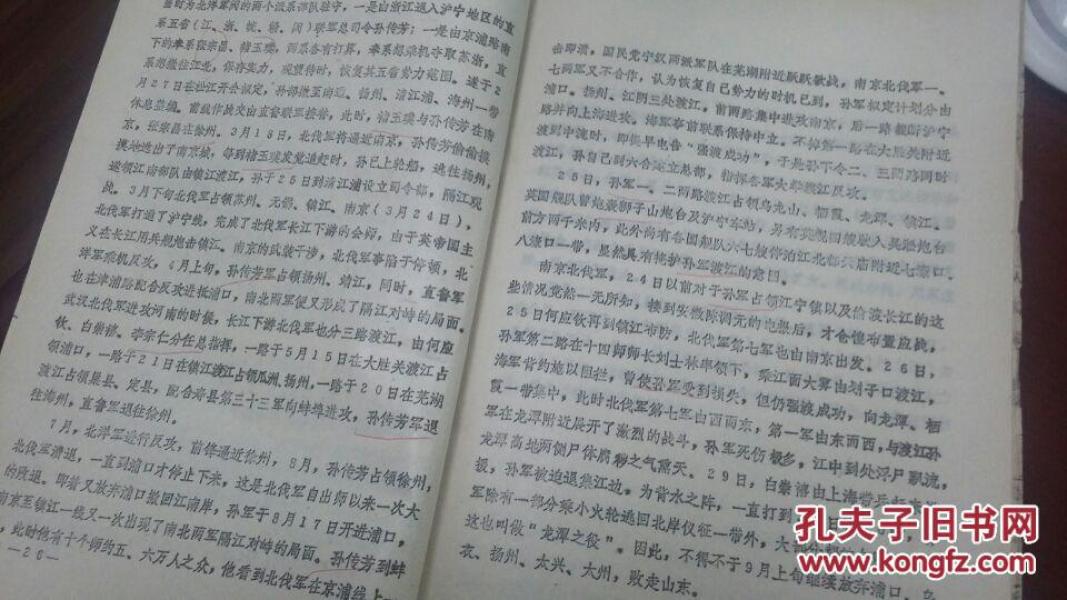 当时为北洋军阀的两个派系部队驻守，一是由浙江退入沪宁地区的直
系五省（江、浙、皖、赣、闽）联军总司令孙传芳；一是由京浦路南
下的奉系张宗昌、褚玉璞，两系各有打算，奉系想乘机夺取苏浙，直
系想撤往江北，保存实力，观望待时，恢复其五省势力范围。遂于2
月27日在松江开会拟定，孙部撤至南通、扬州、清江浦、海州一带
休息整编。前线作战交由直鲁联军接替，此时，褚玉璞与孙传芳在南
京，张宗昌在徐州。3月18日，北伐军将逼近南京，孙传芳偷偷摸
摸地逃出了南京城，等到褚玉璞发觉追赶时，孙已上轮船，逃往扬州，
遂领江南部队由镇江渡江，孙于25日到清江浦设立司令部，隔江观
战。3月下旬北伐军占领苏州、无锡、镇江、南京（3月24日），
北伐军打通了沪宁线，完成了北伐军长江下游的会师，由于英帝国主
义在长江用兵舰炮击镇江、南京的武装干涉，北伐军事陷于停顿，北
洋军乘机反攻，4月上旬，孙传芳军占领扬州、靖江，同时，直鲁军
也在津浦路配合反攻进抵浦口，南北两军便又形成了隔江对峙的局面。
武汉北伐军进攻河南的时候，长江下游北伐军也分三路渡江，由何应
钦、白崇禧、李宗仁分任总指挥，一路于5月15日在大胜关渡江占
领浦口，一路于21日在镇江渡江占领瓜洲、扬州，一路于20日在芜湖
渡江占领巢县、定县，配合寿县第三十三军向蚌埠进攻，孙传芳军退
往海州，直鲁军退往徐州。
7月，北洋军进行反攻，前锋逼近徐州，8月，孙传芳占领徐州，
北伐军溃退，一直到浦口才停止下来，这是北伐军自出师以来一次大
的败退。即着又放弃浦口撤回江南岸，孙军于8月17日开进浦口，
南京至镇江一线又一次出现了南北两军隔江对峙的局面。孙传芳到蚌
，此时他有十个师约五、六万人之众，他看到北伐军在京浦线上
—26—
击即溃，国民党宁汉两派军队在芜湖附近跃跃欲战，南京北伐军一、
七两军又不合作，认为恢复自己势力的时机已到，孙军拟定计划分由
浦口、扬州、江阴三处渡江。前两路集中进攻南京，后一路截断沪宁
路并向上海进攻。海军事前联系保持中立。不掉第一路在大胜关附近
渡到中流时，即提早电告“强渡成功”，于是孙下令二、三两路同时
渡江，孙自己到六合总立总部，指挥各军大举渡江反攻。
25日，孙军一、二两路渡江占领乌龙山、栖霞、龙潭、镇江。
英国舰队曾炮轰狮子山炮台及沪宁车站，另有英舰四艘驶入吴淞炮台
前方两千米内，此外尚有各国舰队六七艘停泊江北都天庙附近七濠口、
八濠口一带，显然具有掩护孙军渡江的意图。
南京北伐军，24日以前对于孙军占领江宁镇以及偷渡长江的这
些情况竟然一无所知，接到安徽陈调元的电报后，才仓惶布置应战，
25日何应钦再到镇江布防，北伐军第七军也由南京出发。26日，
孙军第二路在十四师师长刘士林率领下，乘江面大雾由划子口渡江，
海军背约施以阻拦，曾使孙军受到损失，但仍强渡成功，向龙潭、栖
霞一带集中，此时北伐军第七军由西而东，第一军由东而西，与渡江孙
军在龙潭附近展开了激烈的战斗，孙军死伤极多，江中到处浮尸飘流，
龙潭高地两侧尸体腐秽之气熏天。29日，白崇禧由上海带兵
极，孙军被迫退集江边。为背水之阵，一直打到
军除有一部分乘小火轮逃回北岸仪征一带外，大部
这也叫做“龙潭之役”。因此，不得不于9月上旬继续放弃浦口、乌
衣、扬州、太兴、大州，败走山东。
孔夫子旧书网
www.kongfz.com